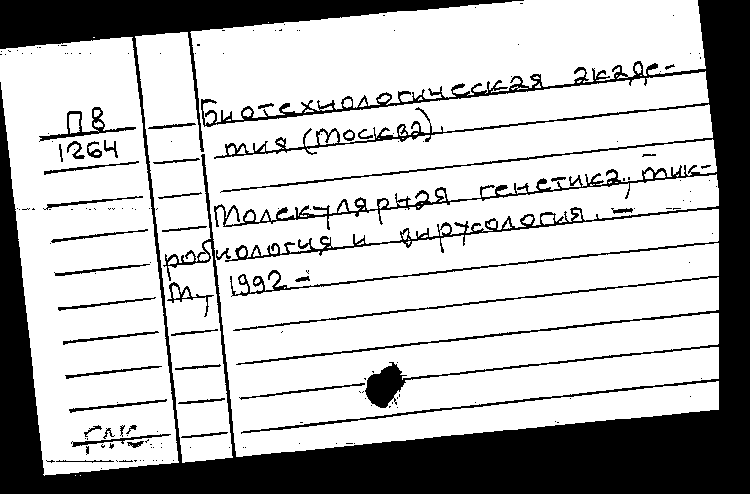 ПВ
1264
Биотехнологическая акаде-
мия (Москва).
Молекулярная генетика, мик-
робиология и вирусология. —
М., 1992 -